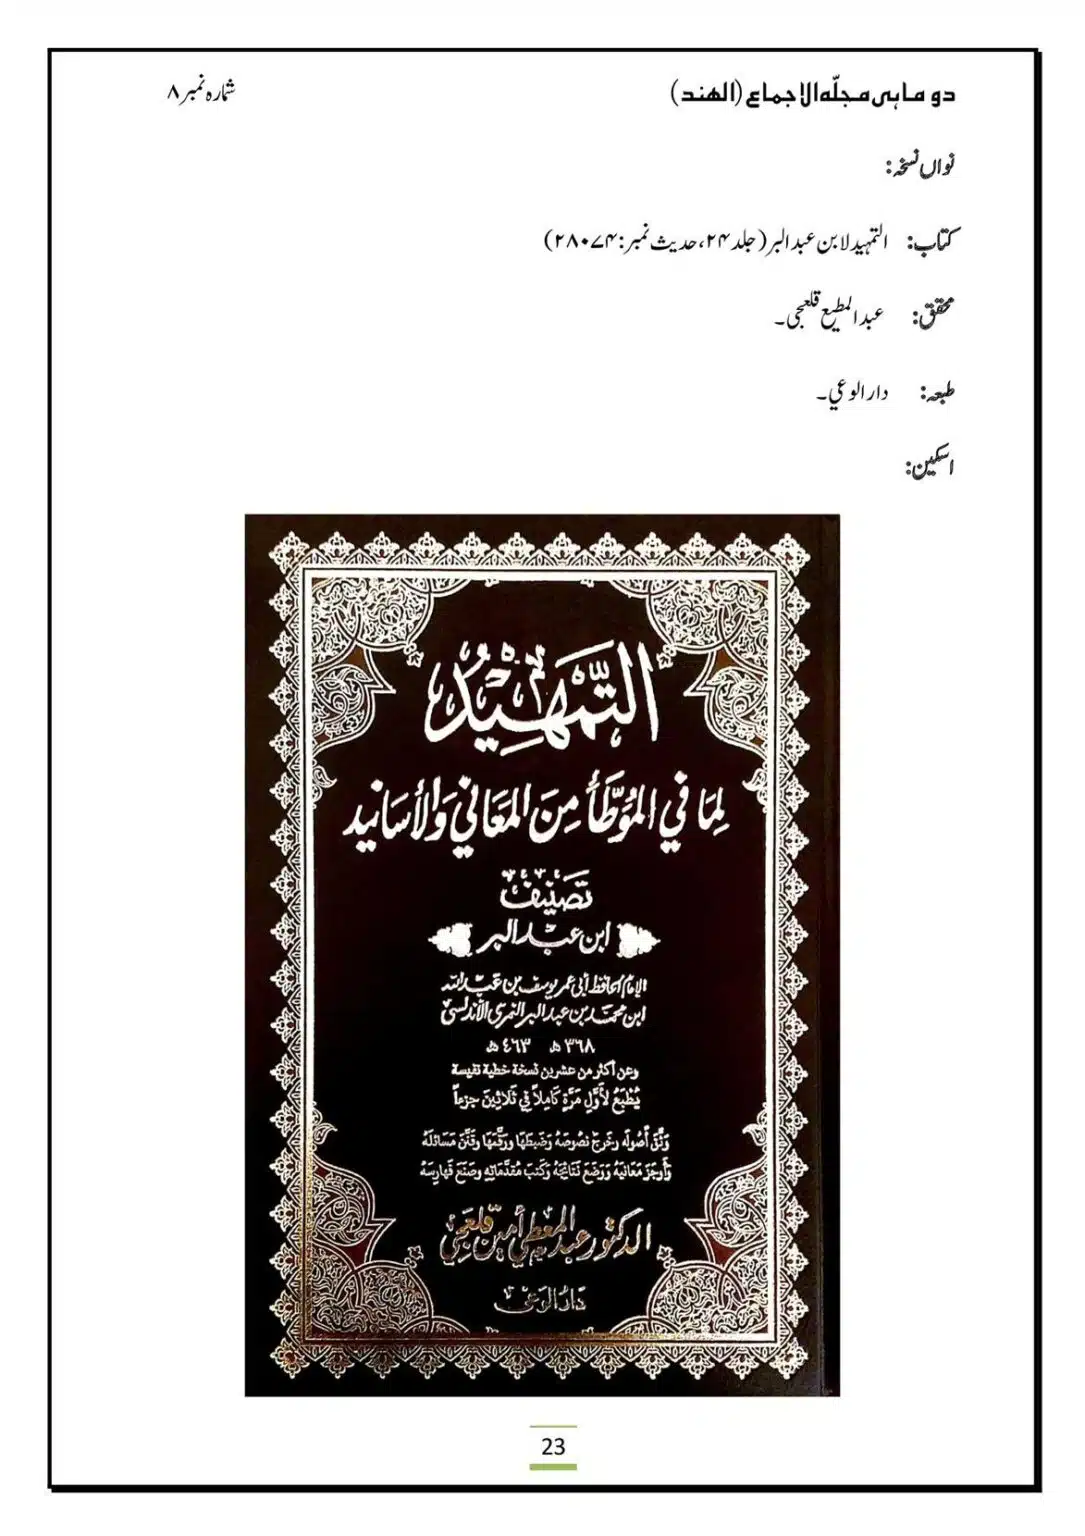 دو ماہی مجلّہ الاجماع (الھند)
شمارہ نمبر ۸
نواں نسخہ:
کتاب: التمہید لابن عبد البر (جلد ۲۴، حدیث نمبر: ۲۸۰۷۴)
محقق: عبد المطیع قلعجی۔
طبعہ: دار الوعي۔
اسکین:
التَّمْهِيْدُ
لِمَا فِي المُوَطَّأ مِنَ المَعَاني وَالأسَانيد
تَصْنِيْفُ
ابن عبد البر
الإمام الحافظ أبي عمر يوسف بن عبد الله
ابن محمد بن عبد البر النمري الأندلسي
٣٦٨ هـ ٤٦٣ هـ
وعن أكثر من عشرين نسخة خطية نفيسة
يُطْبَعُ لأَوَّلِ مَرَّةٍ كَامِلاً فِي ثَلاثِينَ جزءاً
وَثَّقَ أُصُولَه وخَرجَ نصُوصَهُ وَضَبطَهَا وَرقَّمهَا وقَنَّنَ مَسَائلَهُ
وَأَوجَزَ مَعَانيهُ وَوَضَعَ نَتَائِجَهُ وَكتبَ مُقدَّمَاتِهِ وصَنَعَ فَهارِسَهُ
الدكتور عبد المعطي أمين قلعجي
دَارُ الوَعي
23